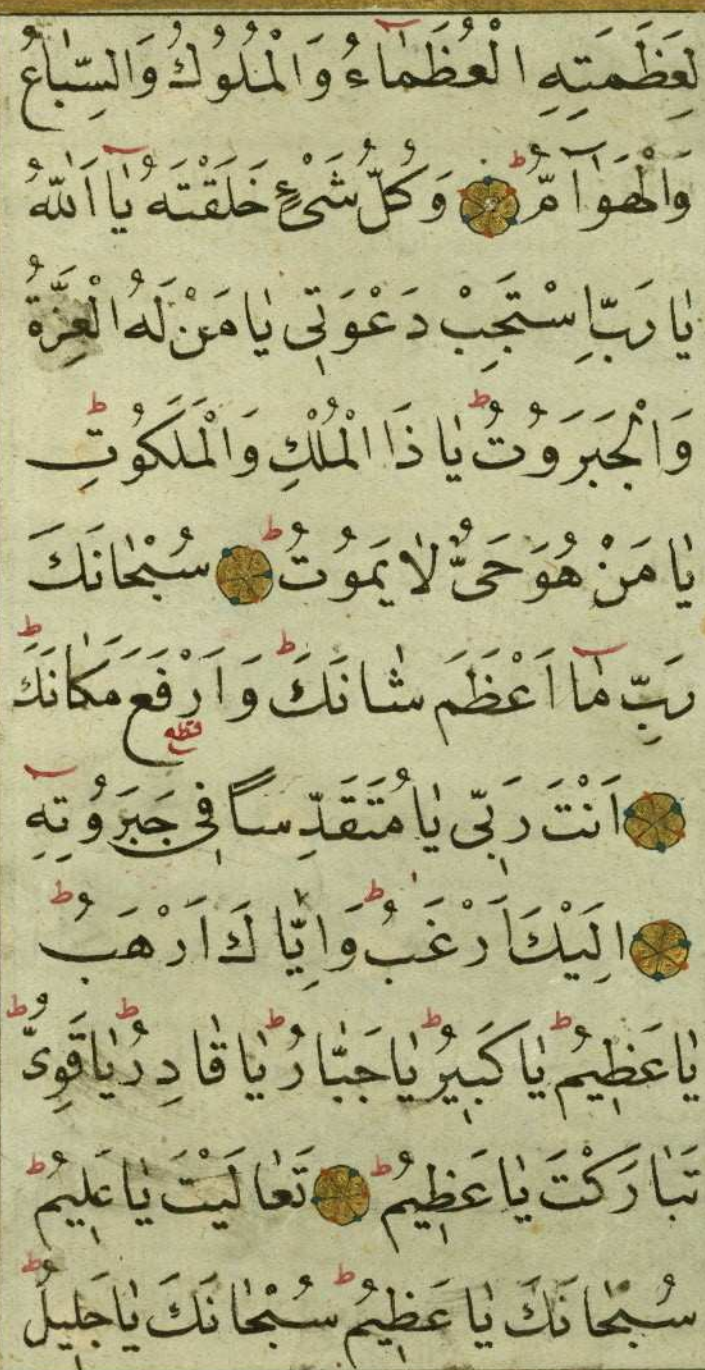 لِعَظَمَتِهِ الْعُظَمَآءُ وَالْمُلُوكُ وَالسِّبَاعُ
وَالْهَوَآمُّ ط وَكُلُّ شَىْءٍ خَلَقْتَهُ يَآ اَللّٰهُ
يَا رَبِّ اسْتَجِبْ دَعْوَتِى يَا مَنْ لَهُ الْعِزَّةُ
وَالْجَبَرَوُتُ ط يَا ذَا الْمُلْكِ وَالْمَلَكُوتِ ط
يَا مَنْ هُوَ حَىٌّ لَا يَمُوتُ ط سُبْحَانَكَ
رَبِّ مَآ اَعْظَمَ شَانَكَ ط وَاَرْفَعَ مَكَانَكَ ط
قطه
اَنْتَ رَبِّى يَا مُتَقَدِّسًا فِى جَبَرَوُتِهِ
اِلَيْكَ اَرْغَبُ ط وَاِيَّاكَ اَرْهَبُ ط
يَا عَظِيمُ ط يَا كَبِيرُ ط يَا جَبَّارُ ط يَا قَادِرُ ط يَا قَوِىُّ ط
تَبَارَكْتَ يَا عَظِيمُ ط تَعَالَيْتَ يَا عَلِيمُ ط
سُبْحَانَكَ يَا عَظِيمُ ط سُبْحَانَكَ يَا جَلِيلُ ط